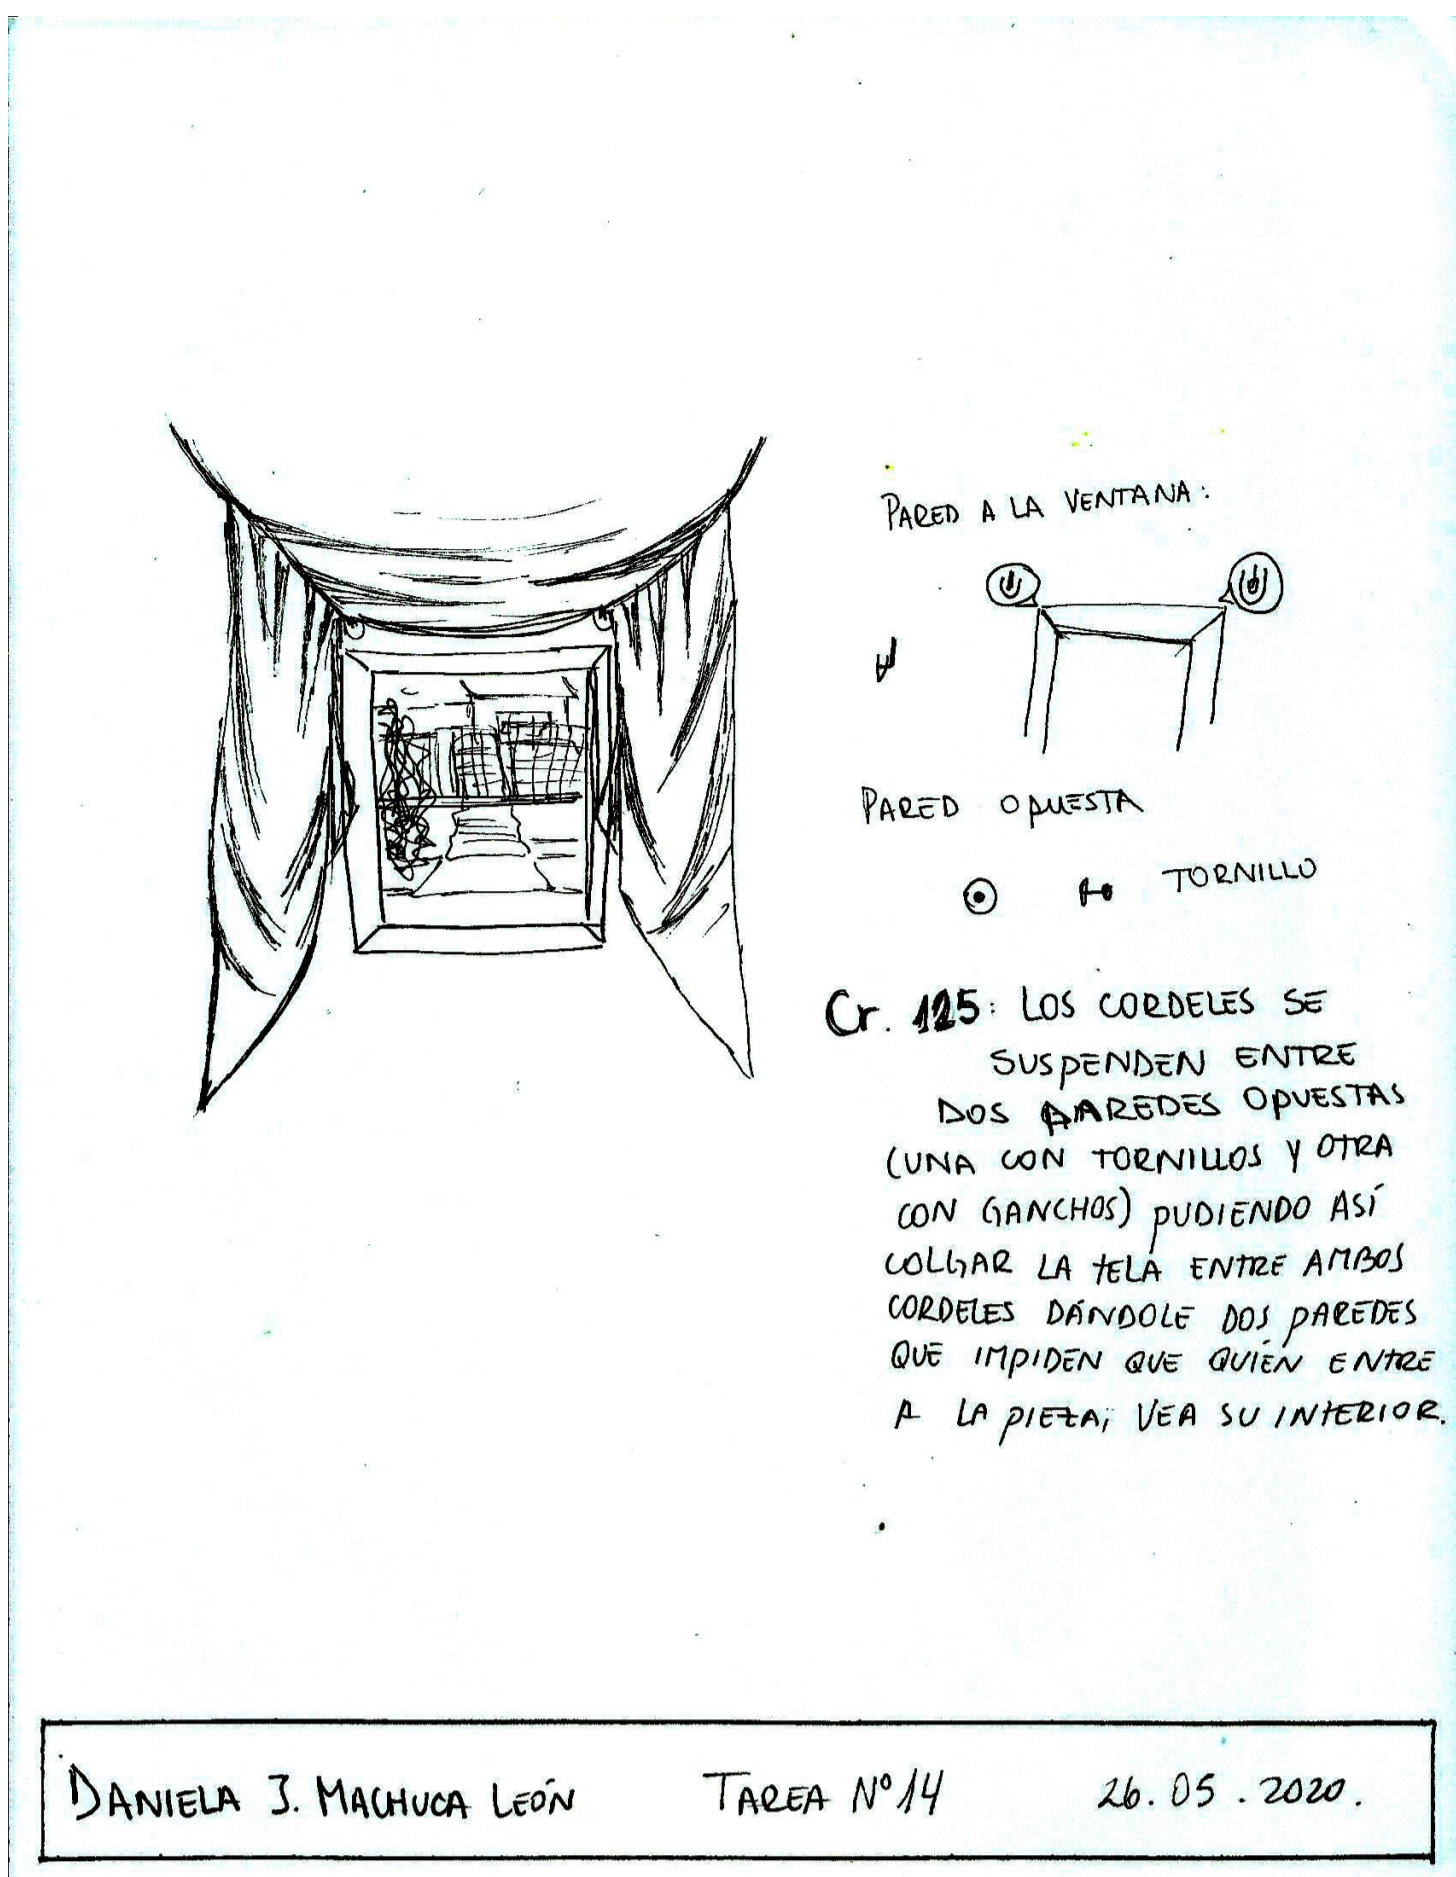 PARED A LA VENTANA:
PARED OPUESTA
TORNILLO
Cr. 125: LOS CORDELES SE
SUSPENDEN ENTRE
DOS PAREDES OPUESTAS
(UNA CON TORNILLOS Y OTRA
CON GANCHOS) PUDIENDO ASÍ
COLGAR LA TELA ENTRE AMBOS
CORDELES DÁNDOLE DOS PAREDES
QUE IMPIDEN QUE QUIÉN ENTRE
A LA PIEZA, VEA SU INTERIOR.
DANIELA J. MACHUCA LEÓN TAREA Nº 14 26.05.2020.